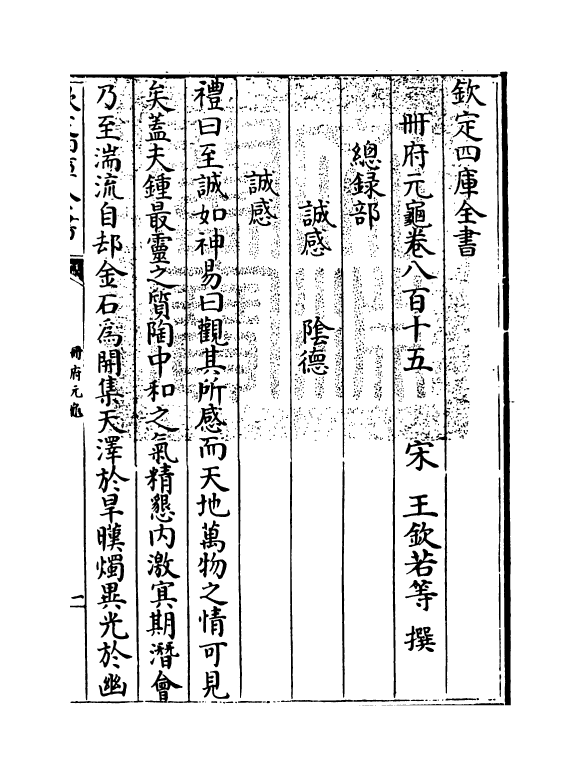 欽定四庫全書
冊府元龜卷八百十五　宋　王欽若等　撰
總録部
誠感　隂德
誠感
禮曰至誠如神易曰觀其所感而天地萬物之情可見
矣蓋夫鍾最靈之質陶中和之氣精懇内激㝠期潛會
乃至湍流自却金石為開集天澤於旱暵燭異光於幽
冊府元龜
一